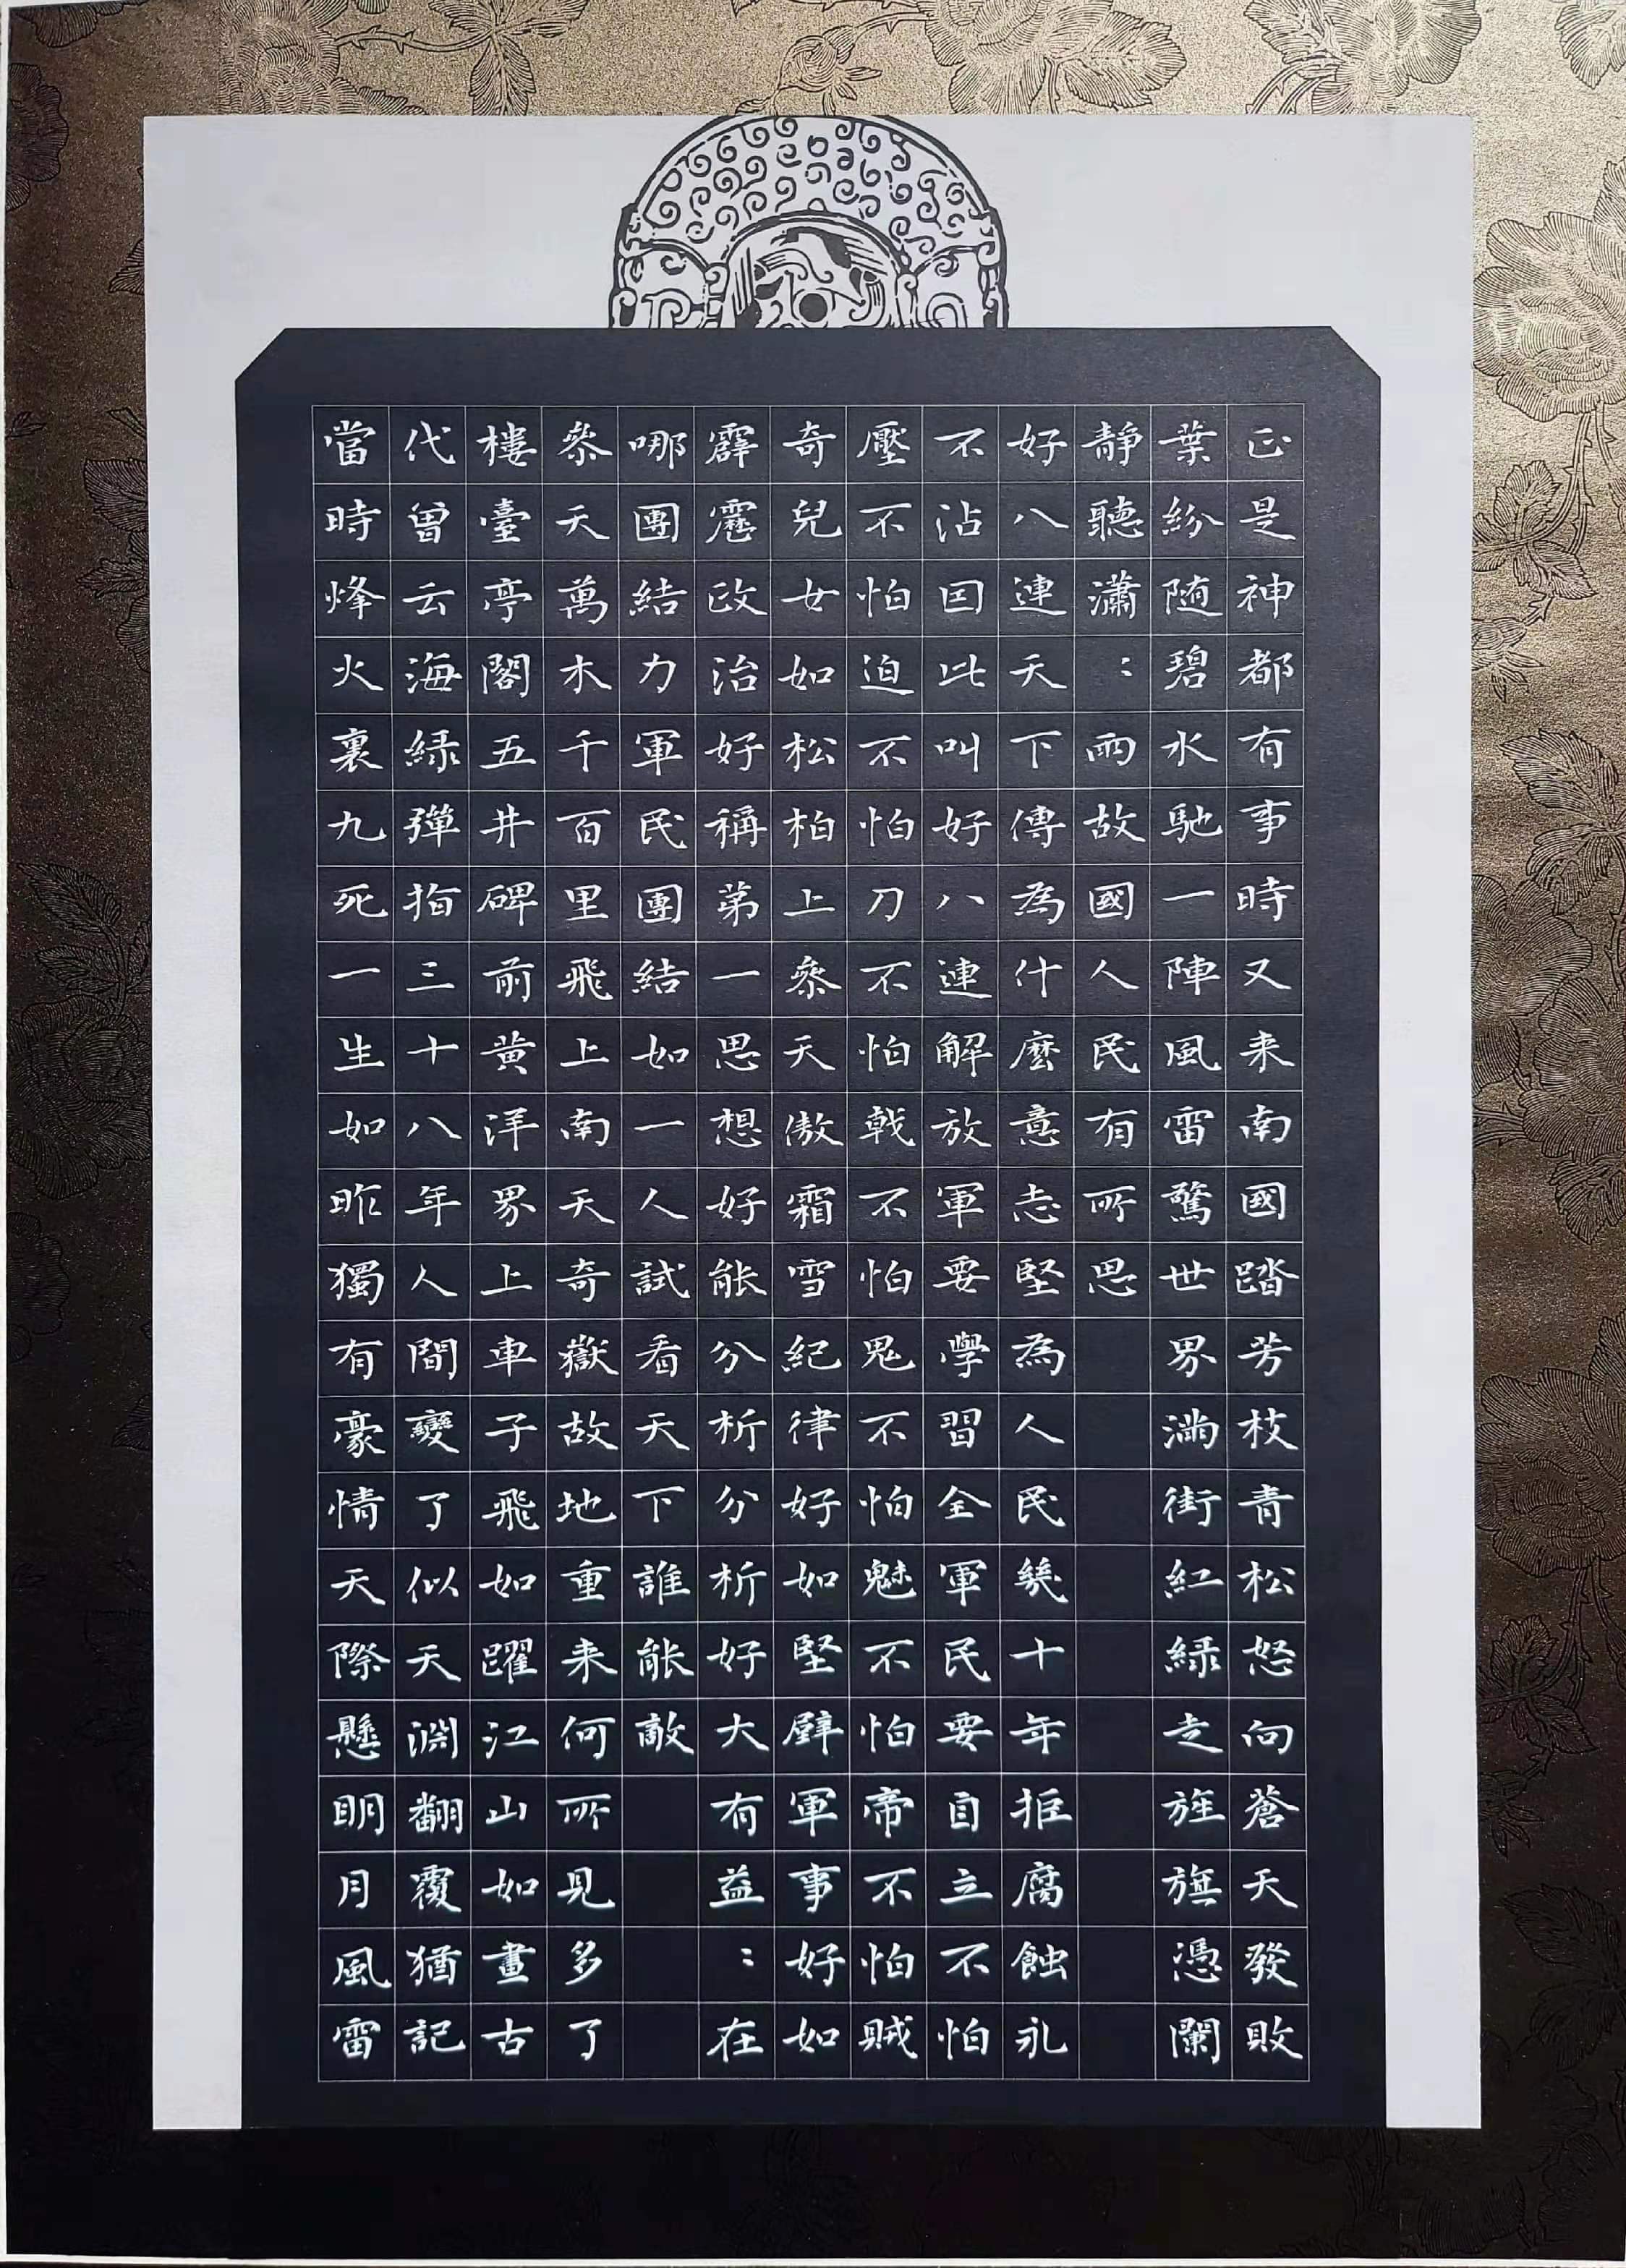 正是神都有事時又来南國踏芳枝青松怒向蒼天發敗
葉紛随碧水馳一陣風雷驚世界満街紅緑走旌旗憑闌
靜聽瀟：雨故國人民有所思
好八連天下傳為什麼意志堅為人民幾十年拒腐蝕永
不沾囙此叫好八連解放軍要學習全軍民要自立不怕
壓不怕迫不怕刀不怕戟不怕鬼不怕魅不怕帝不怕賊
奇兒女如松柏上參天傲霜雪紀律好如堅壁軍事好如
霹靂政治好稱第一思想好能分析分析好大有益：在
哪團結力軍民團結如一人試看天下誰能敵
參天萬木千百里飛上南天奇嶽故地重来何所見多了
樓臺亭閣五井碑前黄洋界上車子飛如躍江山如畫古
代曾云海緑彈指三十八年人間變了似天淵翻覆猶記
當時烽火裏九死一生如昨獨有豪情天際懸明月風雷